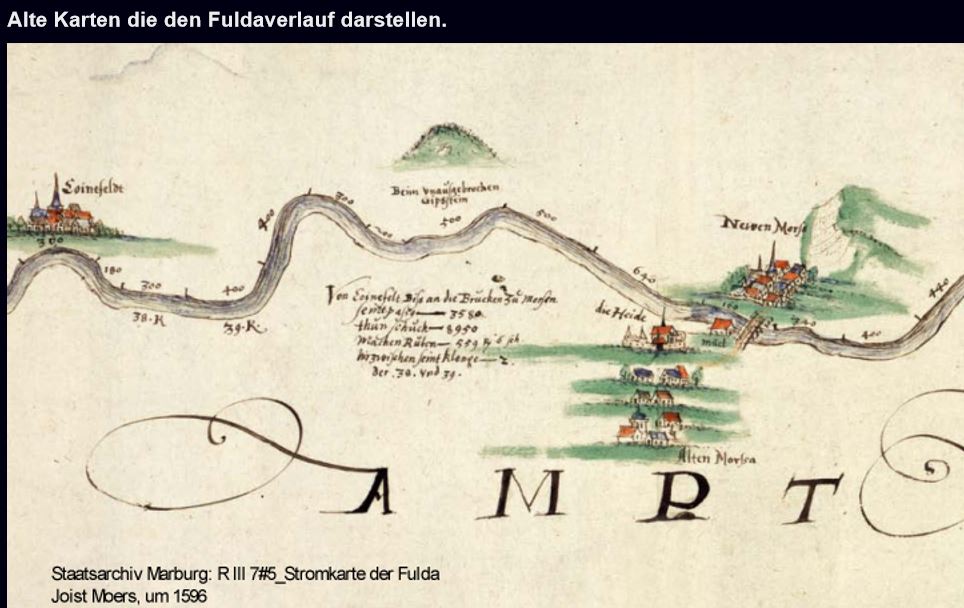 Alte Karten die den Fuldaverlauf darstellen.
Loinefeldt
Beim vnausgebrochen
Gipstein
Newen Morse
300
180
300
400
400
300
500
500
640
440
400
440
38. K
39. K.
Von Loinefelt Biss an die Brucken zu Morsen
3580.
thun schuck — 8950
Machen Rüten — 559
hirzwischen seint klenge — 2.
Der .38. vnd 39.
die Heide
Alten Morsen
AMPT
Staatsarchiv Marburg: R III 7#5_Stromkarte der Fulda
Joist Moers, um 1596